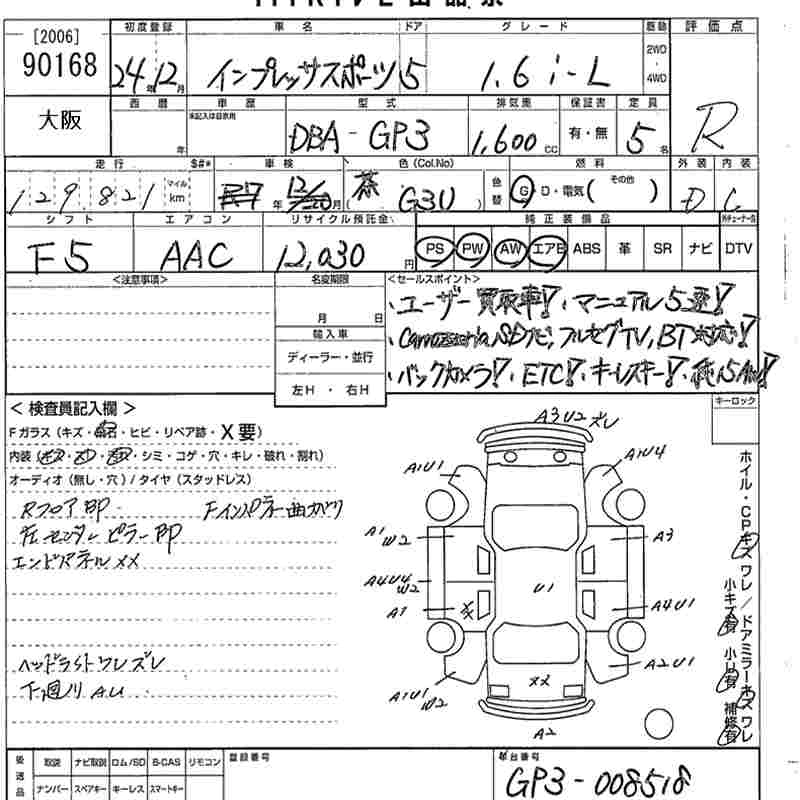 [2006]
90168
初度登録 車名 ドア グレード 駆動 評価点
24年12月 インプレッサスポーツ 5 1.6 i-L 2WD・4WD R
大阪
西暦 車歴 型式 排気量 保証書 定員
年 未記入は自家用 DBA-GP3 1,600cc 有・無 5名
走行 $#* 車検 色(Col.No) 色替 燃料 外装 内装
129,821 マイル km R7年 12/20月 茶 ( G3U ) G・D・電気( その他 ) D C
シフト エアコン リサイクル預託金 純正装備品
F5 AAC 12,030円 PS PW AW エアB ABS 革 SR ナビ DTV
<注意事項> 名変期限 <セールスポイント>
月 日
・ユーザー買取車!・マニュアル5速!
輸入車
・Carrozzeria SDナビ, フルセグTV, BT対応!
ディーラー・並行
・バックカメラ!・ETC!・キーレスキー!
左H ・ 右H
<検査員記入欄> キーロック
Fガラス(キズ・飛石・ヒビ・リペア跡・X要)
内装(キズ・シミ・コゲ・穴・キレ・破れ・割れ)
オーディオ(無し・穴)/タイヤ(スタッドレス)
Rフロア凹 Fインパネラー曲ガリ
左センターピラー凹
エンドパネルXX
ヘッドライトワレズレ
下廻りAU
A3U2ズレ
A1U1 A1U4
A1 W2 A3
A4U4 W2 U1
A1 XX A4U1
A1U1 W2 XX A2U1
A2
ホイル・CPキズワレ/ドアミラーキズワレ
小キズ有 小U有 補修有
後送品 取説 ナビ取説 ロム/SD B-CAS リモコン 登録番号 車台番号
ナンバー スペアキー キーレス スマートキー GP3-008518